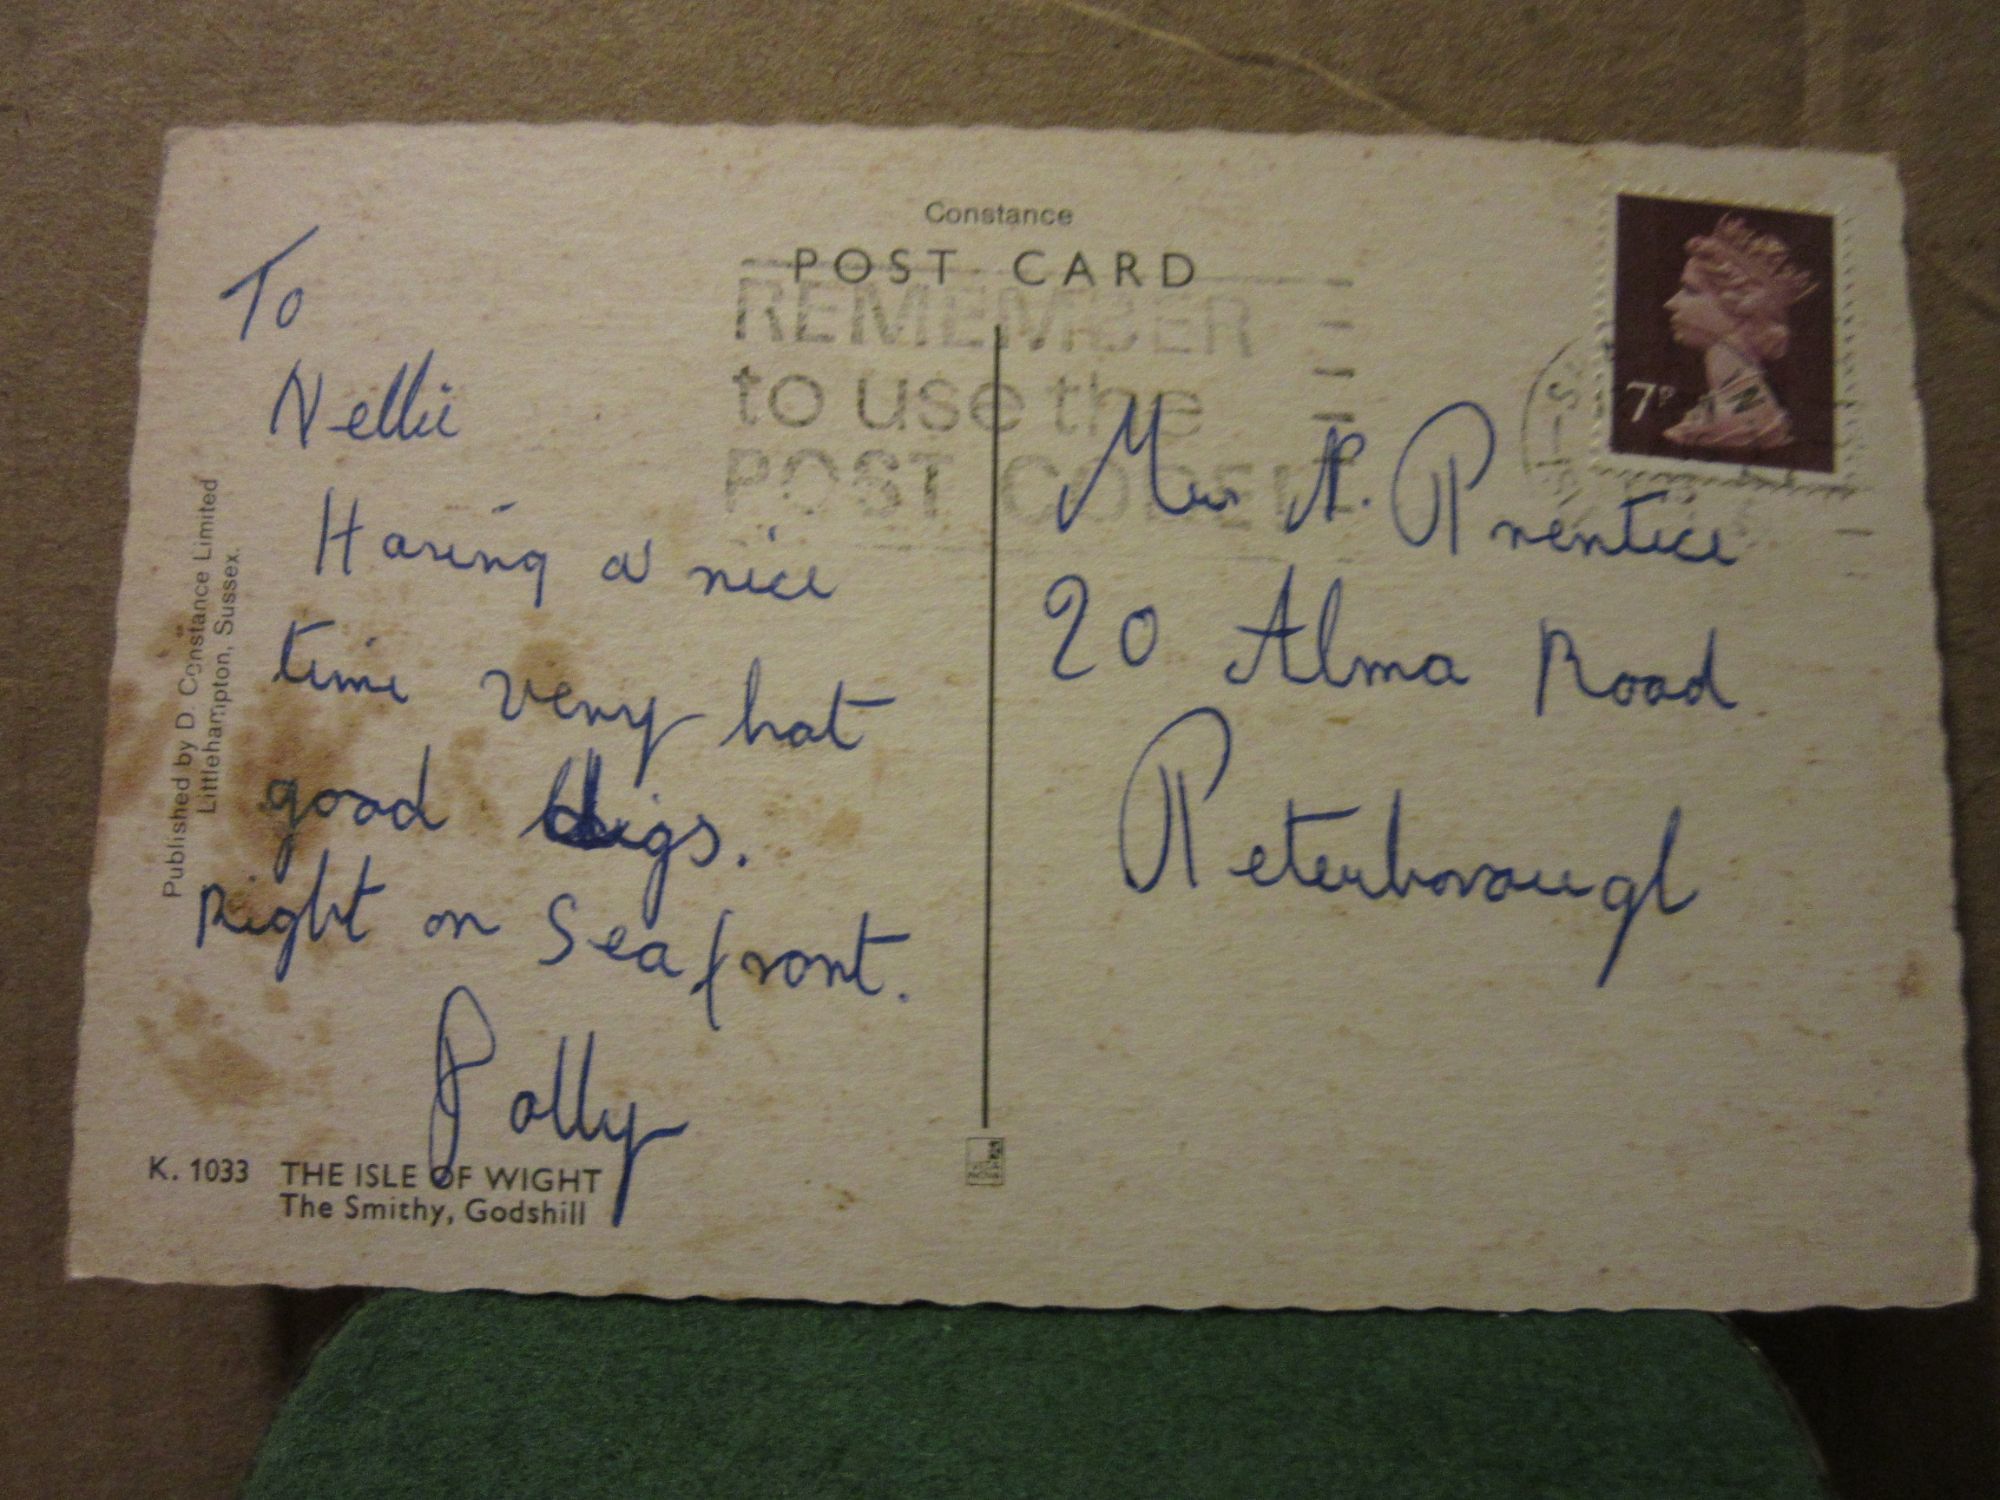 Constance
POST CARD
REMEMBER
to use the
POST CODE
7P
To
Nellie
Having a nice
time very hot
good digs.
Right on Sea front.
Polly
Mrs N. Prentice
20 Alma Road
Peterborough
Published by D. Constance Limited
Littlehampton, Sussex.
K. 1033 THE ISLE OF WIGHT
The Smithy, Godshill